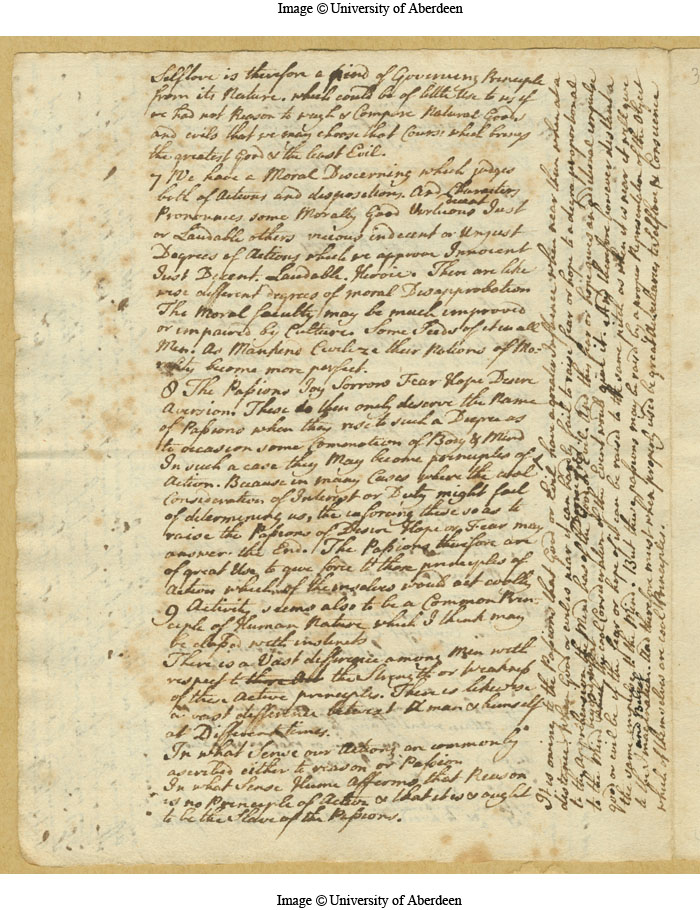 Image © University of Aberdeen
Selflove is therefore a kind of Governing Principle
from its Nature. which could be of little Use to us if
we had not Reason to weigh & Compare Natural Goods
and evils that we may choose that Course which brings
the greatest Good & the least Evil.
7 We have a Moral Discerning which judges
both of Actions and dispositions. And Characters
Pronounces some Morally Good Virtuous decent Just
or Laudable others vicious indecent or Unjust
Degrees of Actions which we approve Innocent
Just Decent. Laudable. Heroic. There are like
wise different degrees of moral Disapprobation
The Moral faculty may be much improved
or impaired by Culture. Some Seeds of it in all
Men. As Mankind Civilize their Notions of Mo-
rality become more perfect.
8 The Passions Joy Sorrow Fear Hope Desire
Aversion. These do then onely deserve the Name
of Passions when they rise to such a Degree as
to occasion some Commotion of Body & Mind
In such a case they May become principles of
Action. Because in many Cases where the cool
Consideration of Interest or Duty might fail
of determining us, the inforcing these so as to
raise the Passions of Desire Hope or Fear may
answer the End. The Passions therefore are
of great Use to give force to those principles of
Action which of themselves would act coolly
9 Activity seems also to be a Common Prin-
ciple of Human Nature which I think may
be classed with instincts
There is a Vast difference among Men with
respect to the Strength or Weakness
of these Active principles. There is likewise
a vast difference betwixt a man & himself
at Different times.
In what Sense our Actions are commonly
ascribed either to reason or Passion
In what Sense Hume affirms that Reason
is no Principle of Action & that it is & ought
to be the Slave of the Passions.
It is owing to the Passions that Good or Evil have a greater Influence when near than when at a
distance. When Good or evil is near it can hardly fail to raise fear or hope to a degree proportional
to the Apprehension the Mind has of the
to the Mind which the cool Consideration of the Event would not give it. And therefore however distant a
good or evil be if the fear or hope of it can be raised to the same pitch as when it is near it will give
the same impulse to the Mind. But these passions may be raised by a proper Representation of the Object
to the imagination. And therefore must when properly used be great Auxiliaries to Selflove & Conscience
which of themselves are cool Principles.
Image © University of Aberdeen